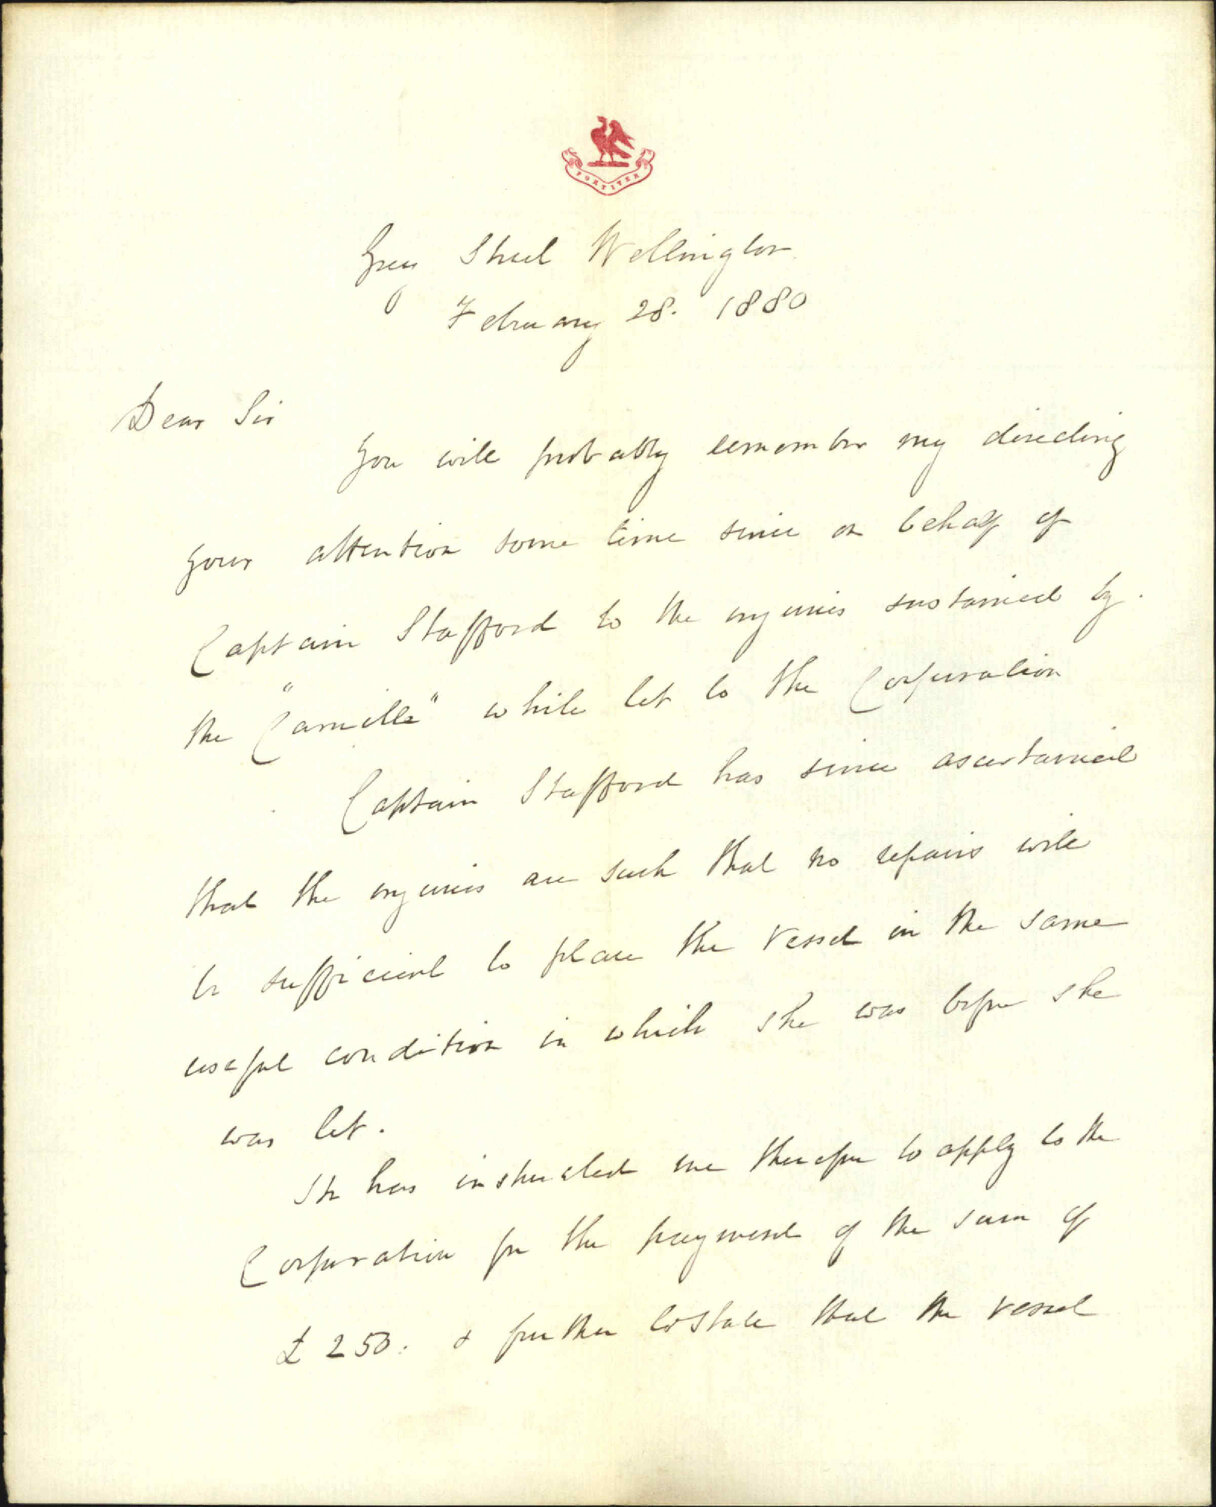 FORTITER
Grey Street Wellington
February 28. 1880
Dear Sir
You will probably remember my directing
your attention some time since on behalf of
Captain Stafford to the injuries sustained by
the "Camilla" while let to the Corporation
Captain Stafford has since ascertained
that the injuries are such that no repairs will
be sufficient to place the vessel in the same
useful condition in which she was before she
was let.
He has instructed me therefore to apply to the
Corporation for the payment of the sum of
£250. & further to state that the vessel